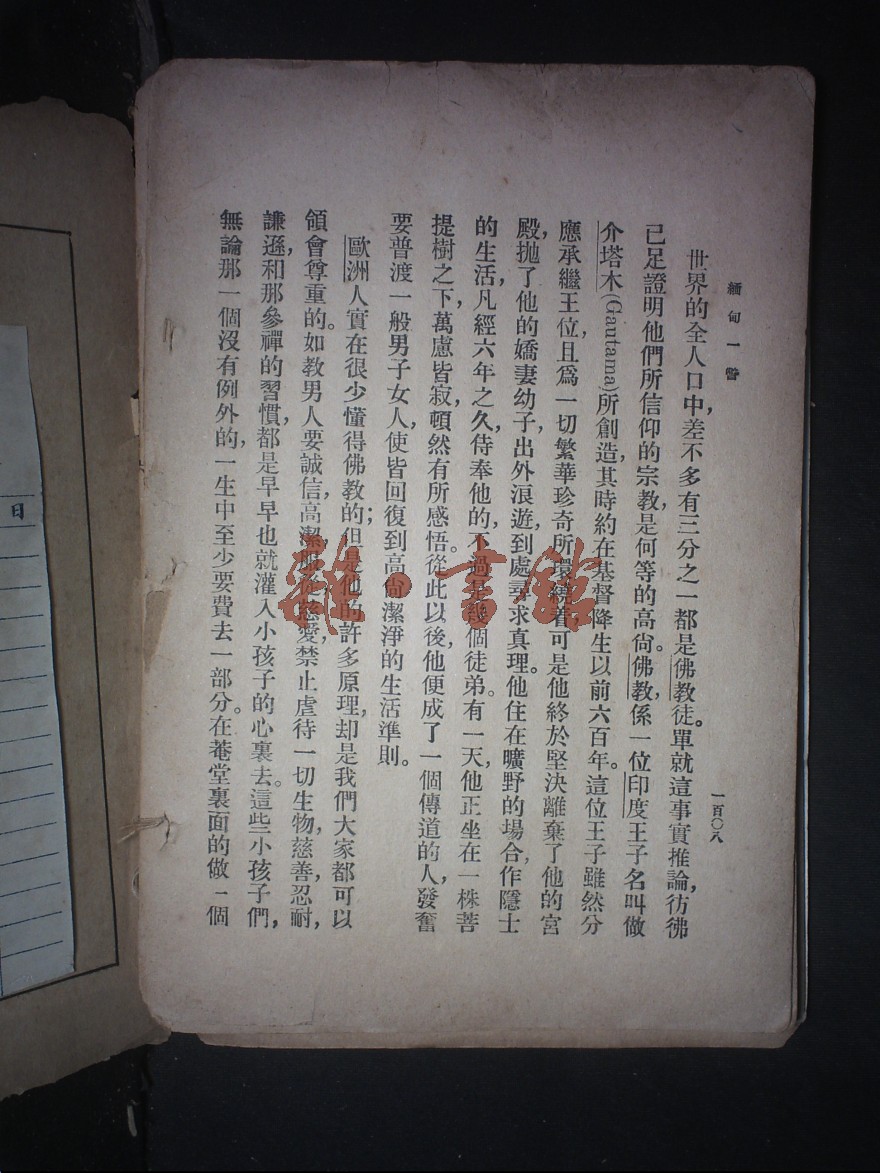 緬甸一瞥
一百〇八
世界的全人口中，差不多有三分之一都是佛教徒。單就這事實推論，彷彿
已足證明他們所信仰的宗教，是何等的高尙。佛教，係一位印度王子名叫做
介塔木(Gautama)所創造，其時約在基督降生以前六百年。這位王子雖然分
應承繼王位，且爲一切繁華珍奇所環繞着，可是他終於堅決離棄了他的宮
殿，拋了他的嬌妻幼子，出外浪遊，到處尋求真理。他住在曠野的場合，作隱士
的生活，凡經六年之久，侍奉他的，不過是幾個徒弟。有一天，他正坐在一株菩
提樹之下，萬慮皆寂，頓然有所感悟。從此以後，他便成了一個傳道的人，發奮
要普渡一般男子女人，使皆回復到高尙潔淨的生活準則。
歐洲人實在很少懂得佛教的；但是他的許多原理，却是我們大家都可以
領會尊重的。如教男人要誠信，高潔，服從，慈愛，禁止虐待一切生物，慈善，忍耐，
謙遜，和那參禪的習慣，都是早早也就灌入小孩子的心裏去。這些小孩子們，
無論那一個沒有例外的，一生中至少要費去一部分。在菴堂裏面的做一個
雜·書館
日